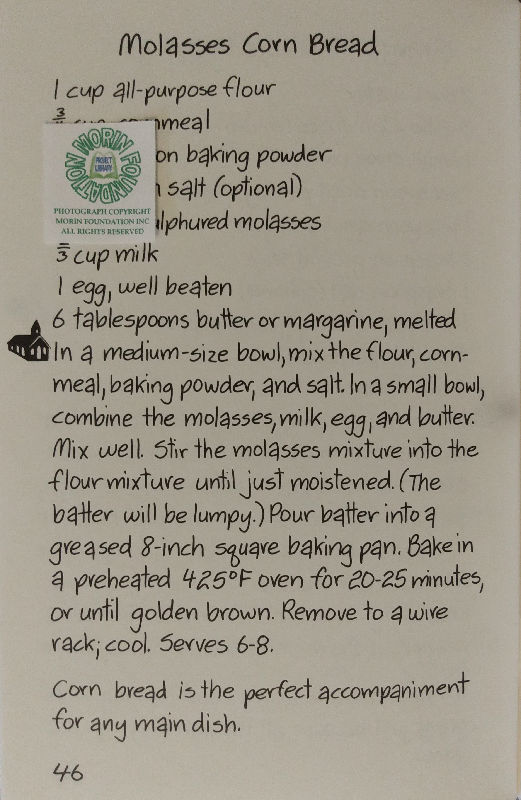 Molasses Corn Bread
1 cup all-purpose flour
meal
on baking powder
salt (optional)
lphured molasses
cup milk
1 egg, well beaten
6 tablespoons butter or margarine, melted
In a medium-size bowl, mix the flour, corn-
meal, baking powder, and salt. In a small bowl,
combine the molasses, milk, egg, and butter.
Mix well. Stir the molasses mixture into the
flour mixture until just moistened. (The
batter will be lumpy.) Pour batter into a
greased 8-inch square baking pan. Bake in
a preheated 425°F oven for 20-25 minutes,
or until golden brown. Remove to a wire
rack; cool. Serves 6-8.
Corn bread is the perfect accompaniment
for any main dish.
46
MORIN FOUNDATION
PROJECT
LIBRARY
PHOTOGRAPH COPYRIGHT
MORIN FOUNDATION INC
ALL RIGHTS RESERVED